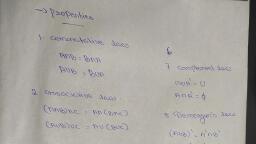 → properties
1. commutative laws
A∩B = B∩A
A∪B = B∪A
2. associative laws
(A∩B)∩C = A∩(B∩C)
(A∪B)∪C = A∪(B∪C)
6
7 complement laws
A∪A' = U
A∩A' = ϕ
8 Demorgan's laws
(A∪B)' = A'∩B'